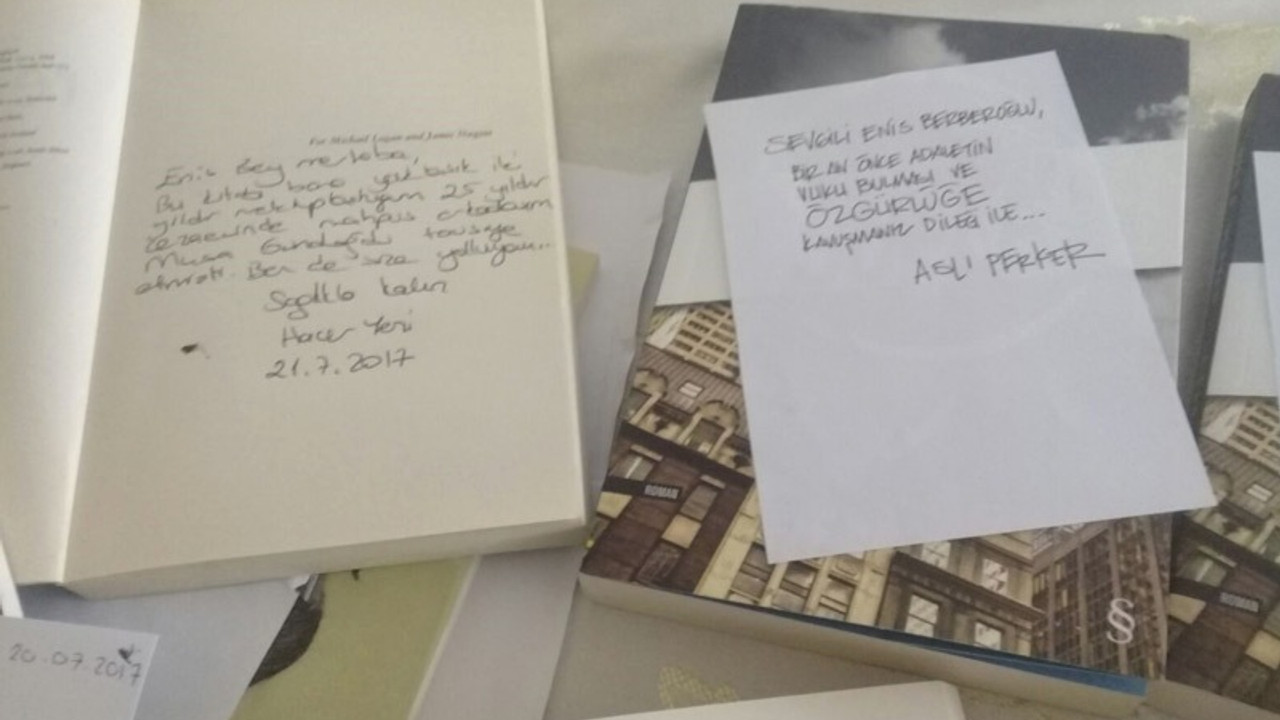 For Michael Logan and Jamie
Enis Bey merhaba,
Bu kitabı bana yak. iki
yıldır mektuplaştığım 25 yıldır
cezaevinde mahpus arkadaşım
Musa tavsiye
etmişti. Ben de size yolluyorum..
Sağlıkla kalın
Hacer
21.7.2017
20.07.2017
SEVGİLİ ENİS BERBEROĞLU,
BİR AN ÖNCE ADALETİN
VUKU BULMASI VE
ÖZGÜRLÜĞE
KAVUŞMANIZ DİLEĞİ İLE...
ASLI PERKER
ROMAN
§
ROMAN